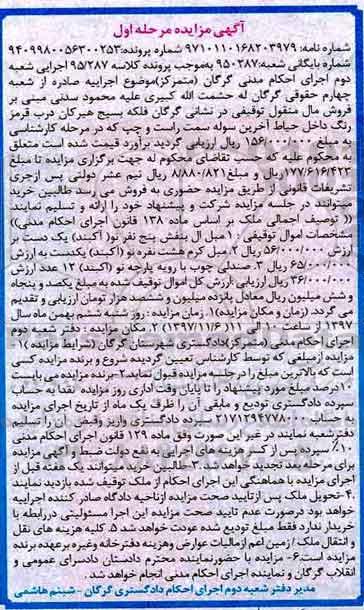 آگهی مزایده مرحله اول
شماره نامه: ۹۷۱۰۱۱۰۱۶۸۲۰۳۹۷۹ شماره پرونده:۹۴۰۹۹۸۰۰۵۶۳۰۰۲۵۳
شماره بایگانی شعبه: ۹۵۰۲۸۷ به‌موجب پرونده کلاسه ۹۵/۲۸۷ اجرایی شعبه
دوم اجرای احکام مدنی گرگان (متمرکز)موضوع اجراییه صادره از شعبه
چهارم حقوقی گرگان له حشمت الله کبیری علیه محمود سدنی مبنی بر
فروش مال منقول توقیفی در نشانی گرگان فلکه بسیج هیرکان درب قرمز
رنگ داخل حیاط آخرین سوله سمت راست و چپ که در مرحله کارشناسی
به مبلغ ۱۵۶/۰۰۰/۰۰۰ ریال ارزیابی گردید برآورد قیمت شده است متعلق
به محکوم علیه که حسب تقاضای محکوم له جهت برگزاری مزایده تا مبلغ
۱۷۷/۶۱۶/۴۲۳ریال و مبلغ ۸/۸۸۰/۸۲۱ ریال نیم عشر دولتی پس ازجری
تشریفات قانونی از طریق مزایده حضوری به فروش می رسد طالبین خرید
میتوانند در جلسه مزایده شرکت و پیشنهاد خود را ارائه و تسلیم نمایند
(( توصیف اجمالی ملک بر اساس ماده ۱۳۸ قانون اجرای احکام مدنی))
مشخصات اموال توقیفی ۱۰ مبل ال بنفش پنج نفر نو( آکبند) یک دست بر
ارزش ۵۶/۰۰۰/۰۰۰ ریال ۲. مبل کرم هشت نفره نو (آکبند) یکدست به ارزش
۶۵/۰۰۰/۰۰۰ ریال ۳. صندلی چوب با رویه پارچه نو (آکبند) ۱۲ عدد ارزش
۳۶/۰۰۰/۰۰۰ ریال ارزیابی .ارزش کل اموال توقیف شده به مبلغ یکصد و پنجاه
و شش میلیون ریال معادل پانزده میلیون و ششصد هزار تومان ارزیابی و تقدیم
می گردد. (زمان و مکان مزایده)۱. زمان مزایده : روز شنبه ششم بهمن ماه سال
۱۳۹۷ از ساعت ۱۰ الی ۱۱ (۱۳۹۷/۱۱/۶) ۲. مکان مزایده : دفتر شعبه دوم
اجرای احکام مدنی (متمرکز)دادگستری شهرستان گرگان (شرایط مزایده )۱-
مزایده ازمبلغی که توسط کارشناس تعیین گردیده شروع و برنده مزایده کسی
است که بالاترین مبلغ را در جلسه مزایده قبول نماید۲-برنده مزایده می بایست
۱۰درصد مبلغ مورد پیشنهاد را تا پایان وقت اداری روز مزایده نقدا به حساب
سپرده دادگستری تودیع و مابقی آن را ظرف یک ماه از تاریخ اجرای مزایده
به حساب ۲۱۷۱۲۹۴۷۷۸۰۰۰ سپرده دادگستری واریز وقبض آن را تسلیم
دفترشعبه نمایند در غیر این صورت وفق ماده ۱۲۹ قانون اجرای احکام مدنی
۱۰٪ سپرده پس از کسر هزینه های اجرایی به نفع دولت ضبط و آگهی مزایده
برای مرحله بعد تجدید خواهد شد. ۳-طالبین خرید میتوانند یک هفته قبل از
اجرای مزایده با هماهنگی این اجرای احکام از ملک توقیف شده بازدید نمایند
۴-تحویل ملک پس ازتایید صحت مزایده ازناحیه دادگاه صادر کننده اجراییه
خواهد بود درصورت عدم تایید صحت مزایده این اجرا مسئولیتی دررابطه با
خریدار ندارد فقط مبلغ تودیع شده عودت خواهد شد .۵. کلیه هزینه های نقل
و انتقال ملک / زمین اعم ازمالیات عوارض وهزینه دفترخانه وغیره برعهده برنده
مزایده است۶- مزایده با حضورنماینده محترم دادستان دادسرای عمومی و
انقلاب گرگان و نماینده اجرای احکام مدنی انجام خواهد شد.
مدیر دفتر شعبه دوم اجرای احکام دادگستری گرگان - شبنم هاشمی